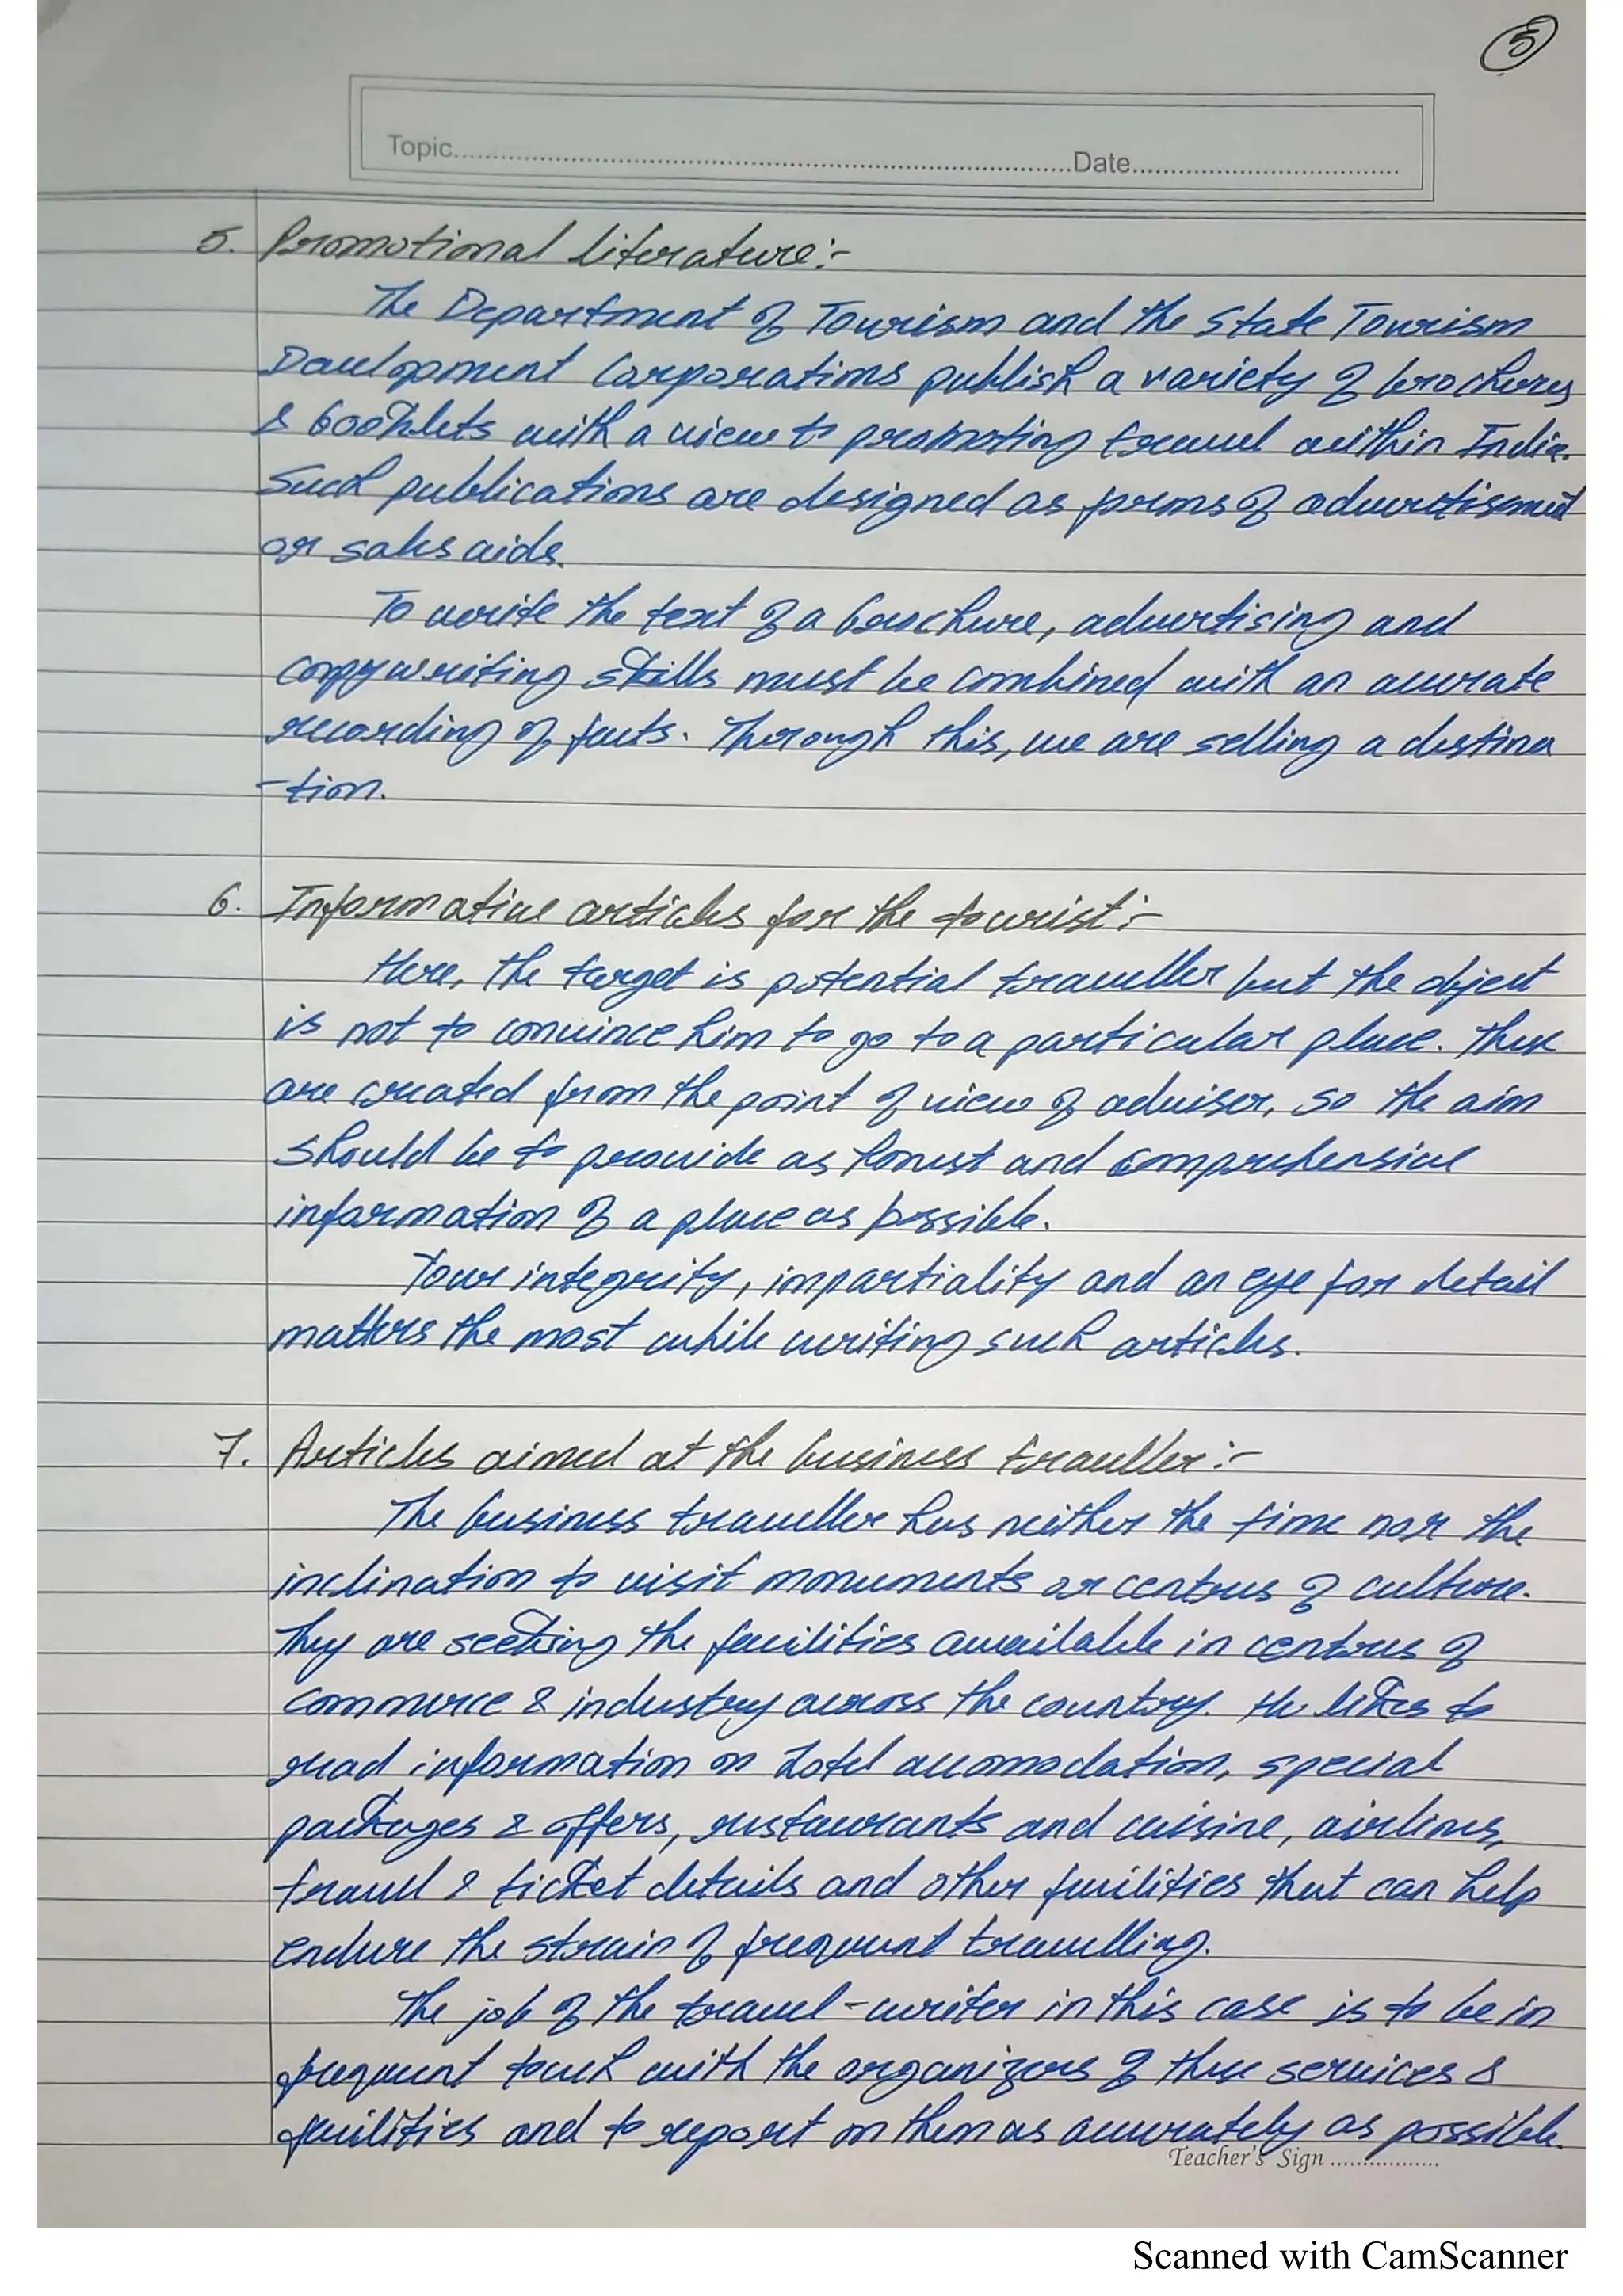 5
Topic..........Date..........
5. Promotional literature:-
The Department of Tourism and the State Tourism
Development Corporations publish a variety of brochures
& booklets with a view to promoting travel within India.
Such publications are designed as forms of advertisment
or sales aids.
To write the text of a brochure, advertising and
copywriting skills must be combined with an accurate
recording of facts. Through this, we are selling a destina
-tion.
6. Informative articles for the tourist:-
Here, the target is potential traveller but the object
is not to convince him to go to a particular place. These
are created from the point of view of adviser, so the aim
should be to provide as honest and comprehensive
information of a place as possible.
Your integrity, impartiality and an eye for detail
matters the most while writing such articles.
7. Articles aimed at the business traveller:-
The business traveller has neither the time nor the
inclination to visit monuments or centres of culture.
They are seeking the facilities available in centres of
commerce & industry across the country. He likes to
read information on hotel accomodation, special
packages & offers, restaurants and cuisine, airlines,
travel & ticket details and other facilities that can help
endure the strain of frequent travelling.
The job of the travel-writer in this case is to be in
frequent touch with the organizers of these services &
facilities and to report on them as accurately as possible.
Teacher's Sign ..........
Scanned with CamScanner